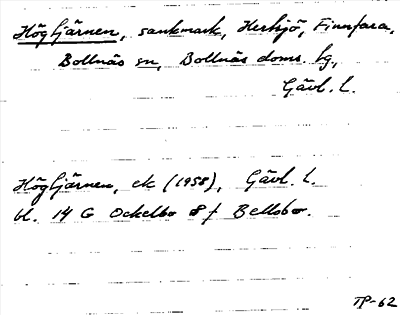 Högtjärnen, sankmark, Hertsjö, Finnfara,
Bollnäs sn, Bollnäs doms. hg,
Gävl. l.
Högtjärnen, ek (1958), Gävl. l.
bl. 14 G Ockelbo 8 f Bellsbo.
TP-62